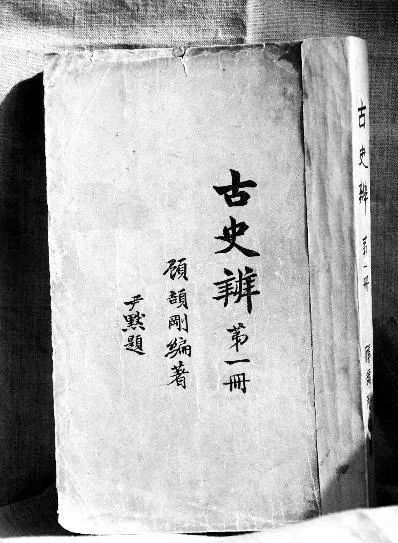 古史辨 第一冊
顧頡剛編著
尹默題
古史辨 第一冊